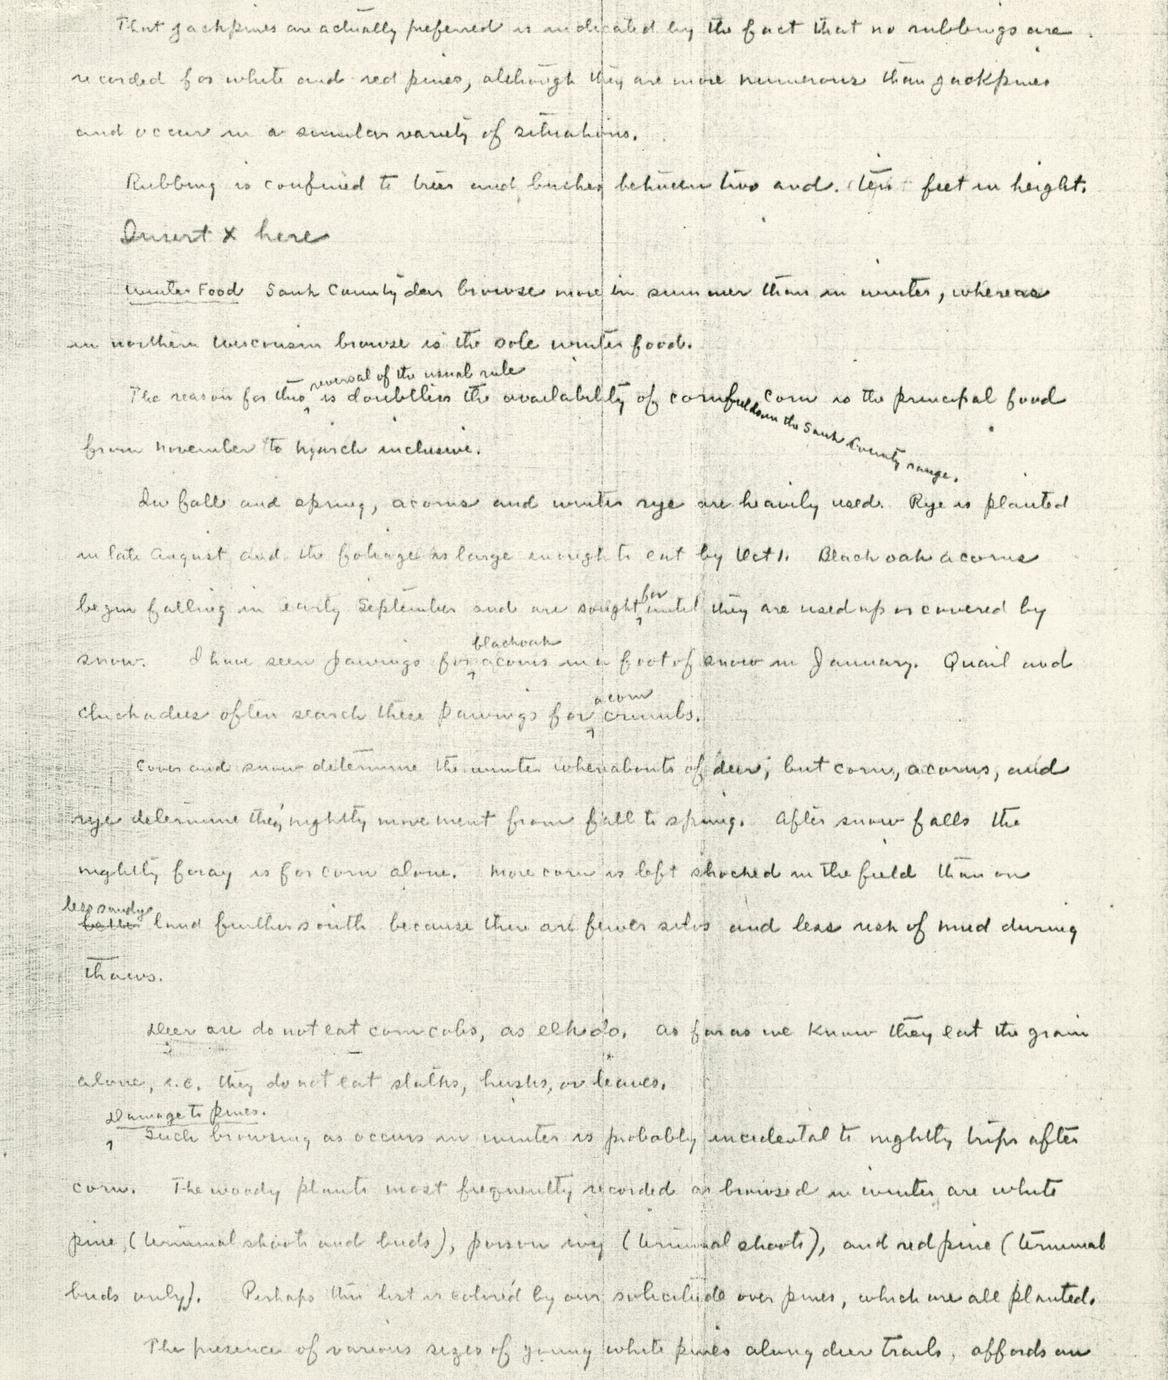 That jackpines are actually preferred is indicated by the fact that no rubbings are
recorded for white and red pines, although they are more numerous than jackpines
and occur in a similar variety of situations.
Rubbing is confined to trees and bushes between two and ten feet in height.
Insert X here
Winter Food Sauk County deer browse more in summer than in winter, whereas
in northern Wisconsin browse is the sole winter food.
reversal of the usual rule
The reason for this is doubtless the availability of cornfields in the Sauk County range. Corn is the principal food
from November to March inclusive.
In fall and spring, acorns and winter rye are heavily used. Rye is planted
in late August and the foliage is large enough to eat by Oct 1. Black oak acorns
begin falling in early September and are sought for until they are used up or covered by
blackoak
snow. I have seen pawings for acorns in a foot of snow in January. Quail and
acorn
chickadees often search these pawings for crumbs.
Cover and snow determine the winter whereabouts of deer; but corn, acorns, and
rye determine their nightly movement from fall to spring. After snow falls the
nightly foray is for corn alone. More corn is left shocked in the field than on
less sandy
better land further south because there are fewer silos and less risk of mud during
thaws.
Deer are do not eat corn cobs, as elk do. As far as we know they eat the grain
alone, i.e. they do not eat stalks, husks, or leaves.
Damage to pines.
Such browsing as occurs in winter is probably incidental to nightly trips after
corn. The woody plants most frequently recorded as browsed in winter are white
pine (terminal shoots and buds), poison ivy (terminal shoots), and red pine (terminal
buds only). Perhaps this list is colored by our solicitude over pines, which are all planted.
The presence of various sizes of young white pines along deer trails, affords an